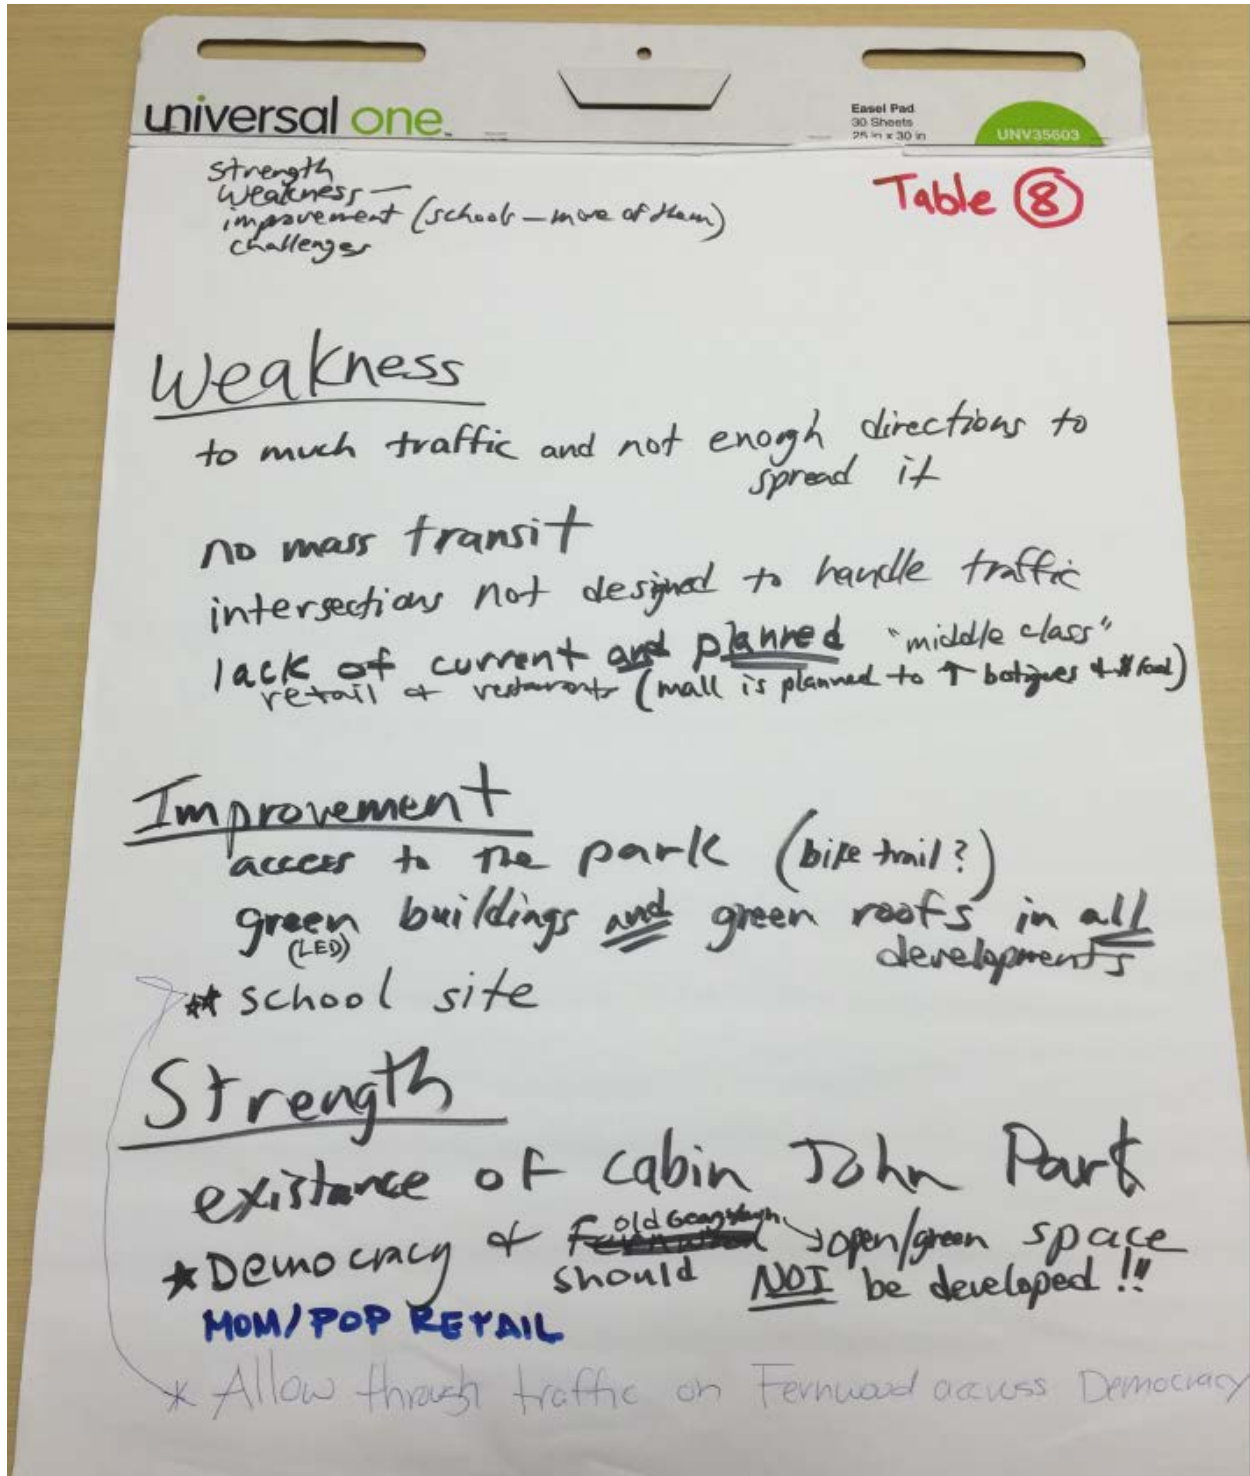 universal one
Easel Pad
30 Sheets
25 in x 30 in
UNV35603
Table 8
Strength
Weakness —
improvement (schools — more of them)
challenges
Weakness
to much traffic and not enough directions to
spread it
no mass transit
intersections not designed to handle traffic
lack of current and planned "middle class"
retail + restaurants (mall is planned to ↑ botiques + $ food)
Improvement
access to the park (bike trail?)
green buildings and green roofs in all
(LED) developments
** school site
Strength
existance of cabin John Park
old Georgetown
* Democracy + → open/green space
should NOT be developed!!
MOM/POP RETAIL
* Allow through traffic on Fernwood accuss Democracy